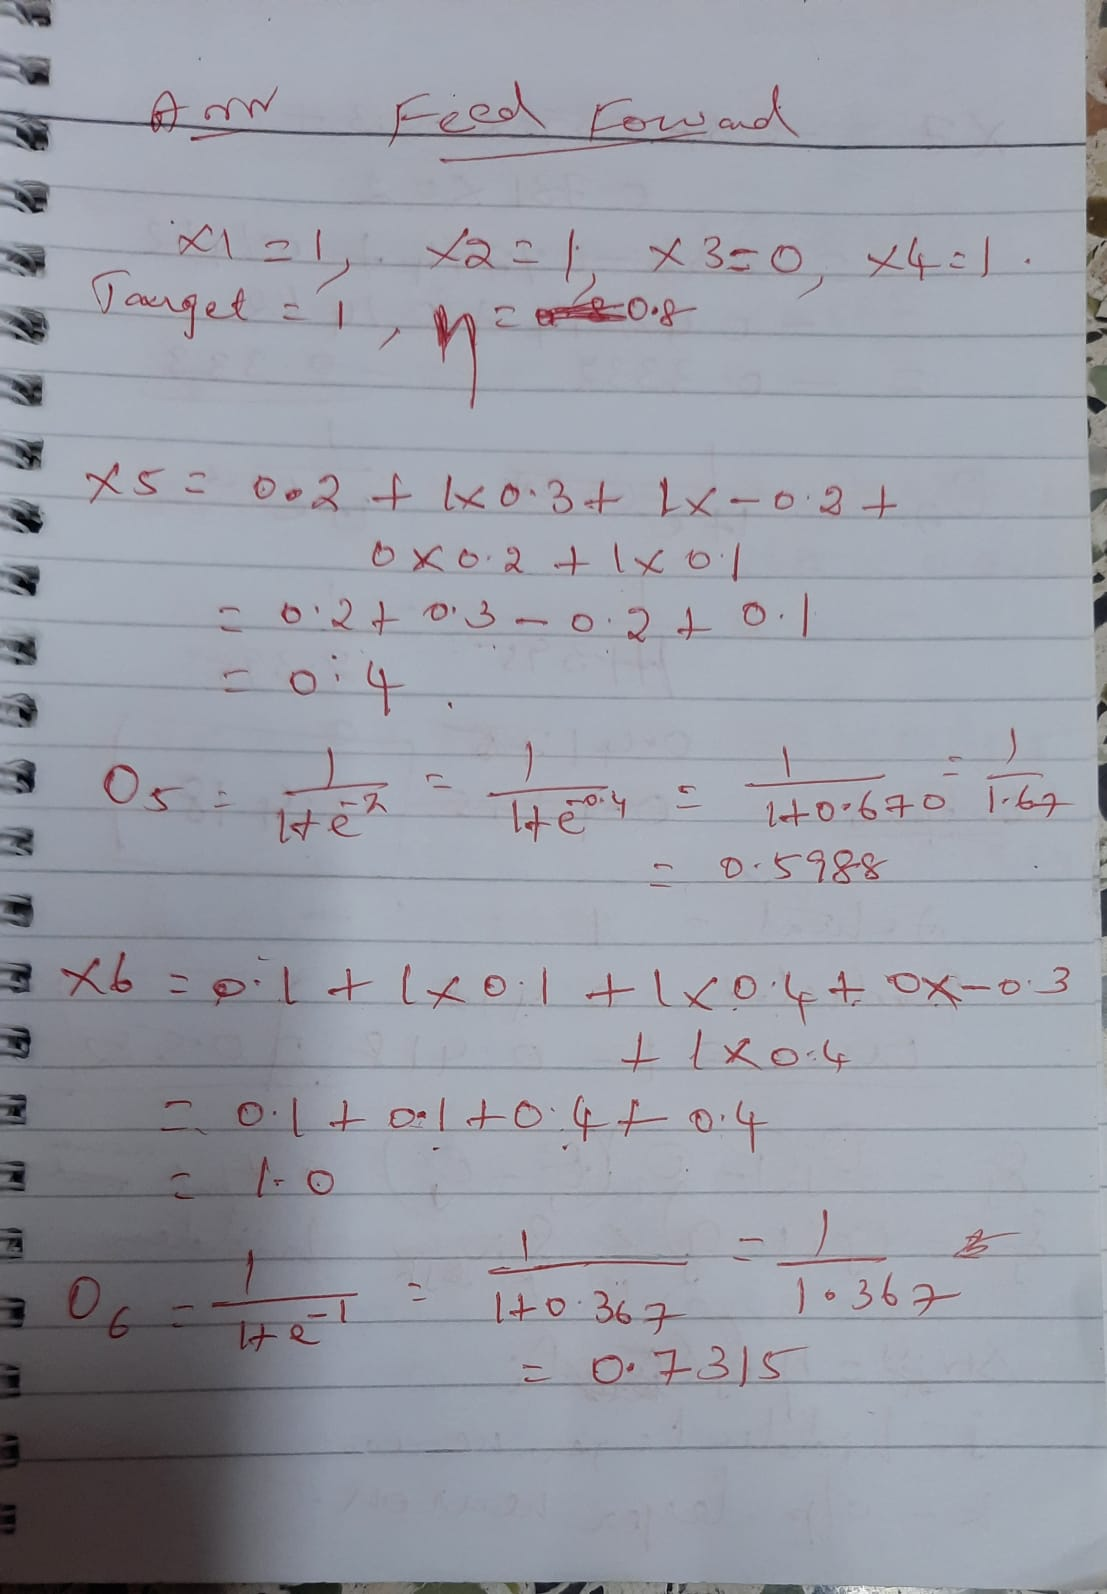 Ann Feed Forward
x1 = 1, x2 = 1, x3 = 0, x4 = 1.
Target = 1, η = 0.8
x5 = 0.2 + 1×0.3 + 1×-0.2 +
0×0.2 + 1×0.1
= 0.2 + 0.3 - 0.2 + 0.1
= 0.4
O5 = 1/(1+e^-x) = 1/(1+e^-0.4) = 1/(1+0.670) = 1/1.67
= 0.5988
x6 = 0.1 + 1×0.1 + 1×0.4 + 0×-0.3
+ 1×0.4
= 0.1 + 0.1 + 0.4 + 0.4
= 1.0
O6 = 1/(1+e^-1) = 1/(1+0.367) = 1/1.367
= 0.7315